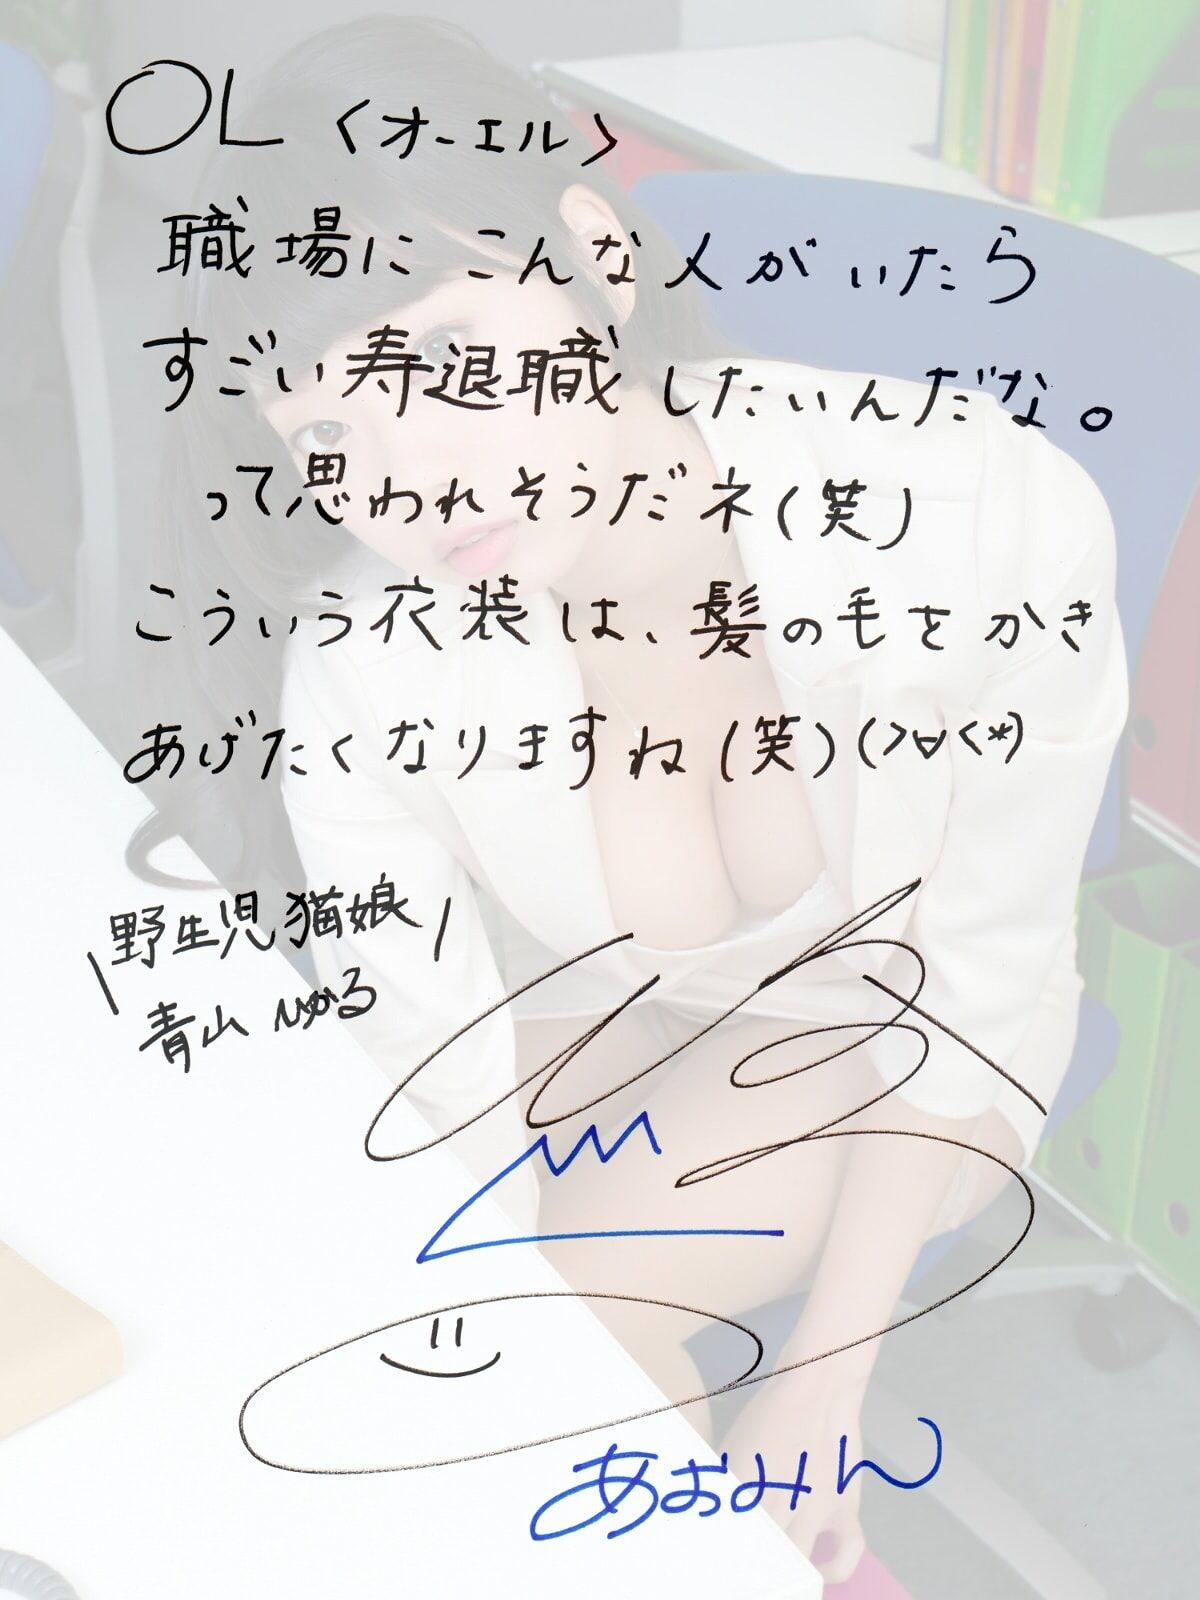 OL 〈オーエル〉
職場にこんな人がいたら
すごい寿退職したいんだな。
って思われそうだネ(笑)
こういう衣装は、髪の毛をかき
あげたくなりますね(笑)(>∀<*)
\野生児猫娘/
青山ひかる
あおみん